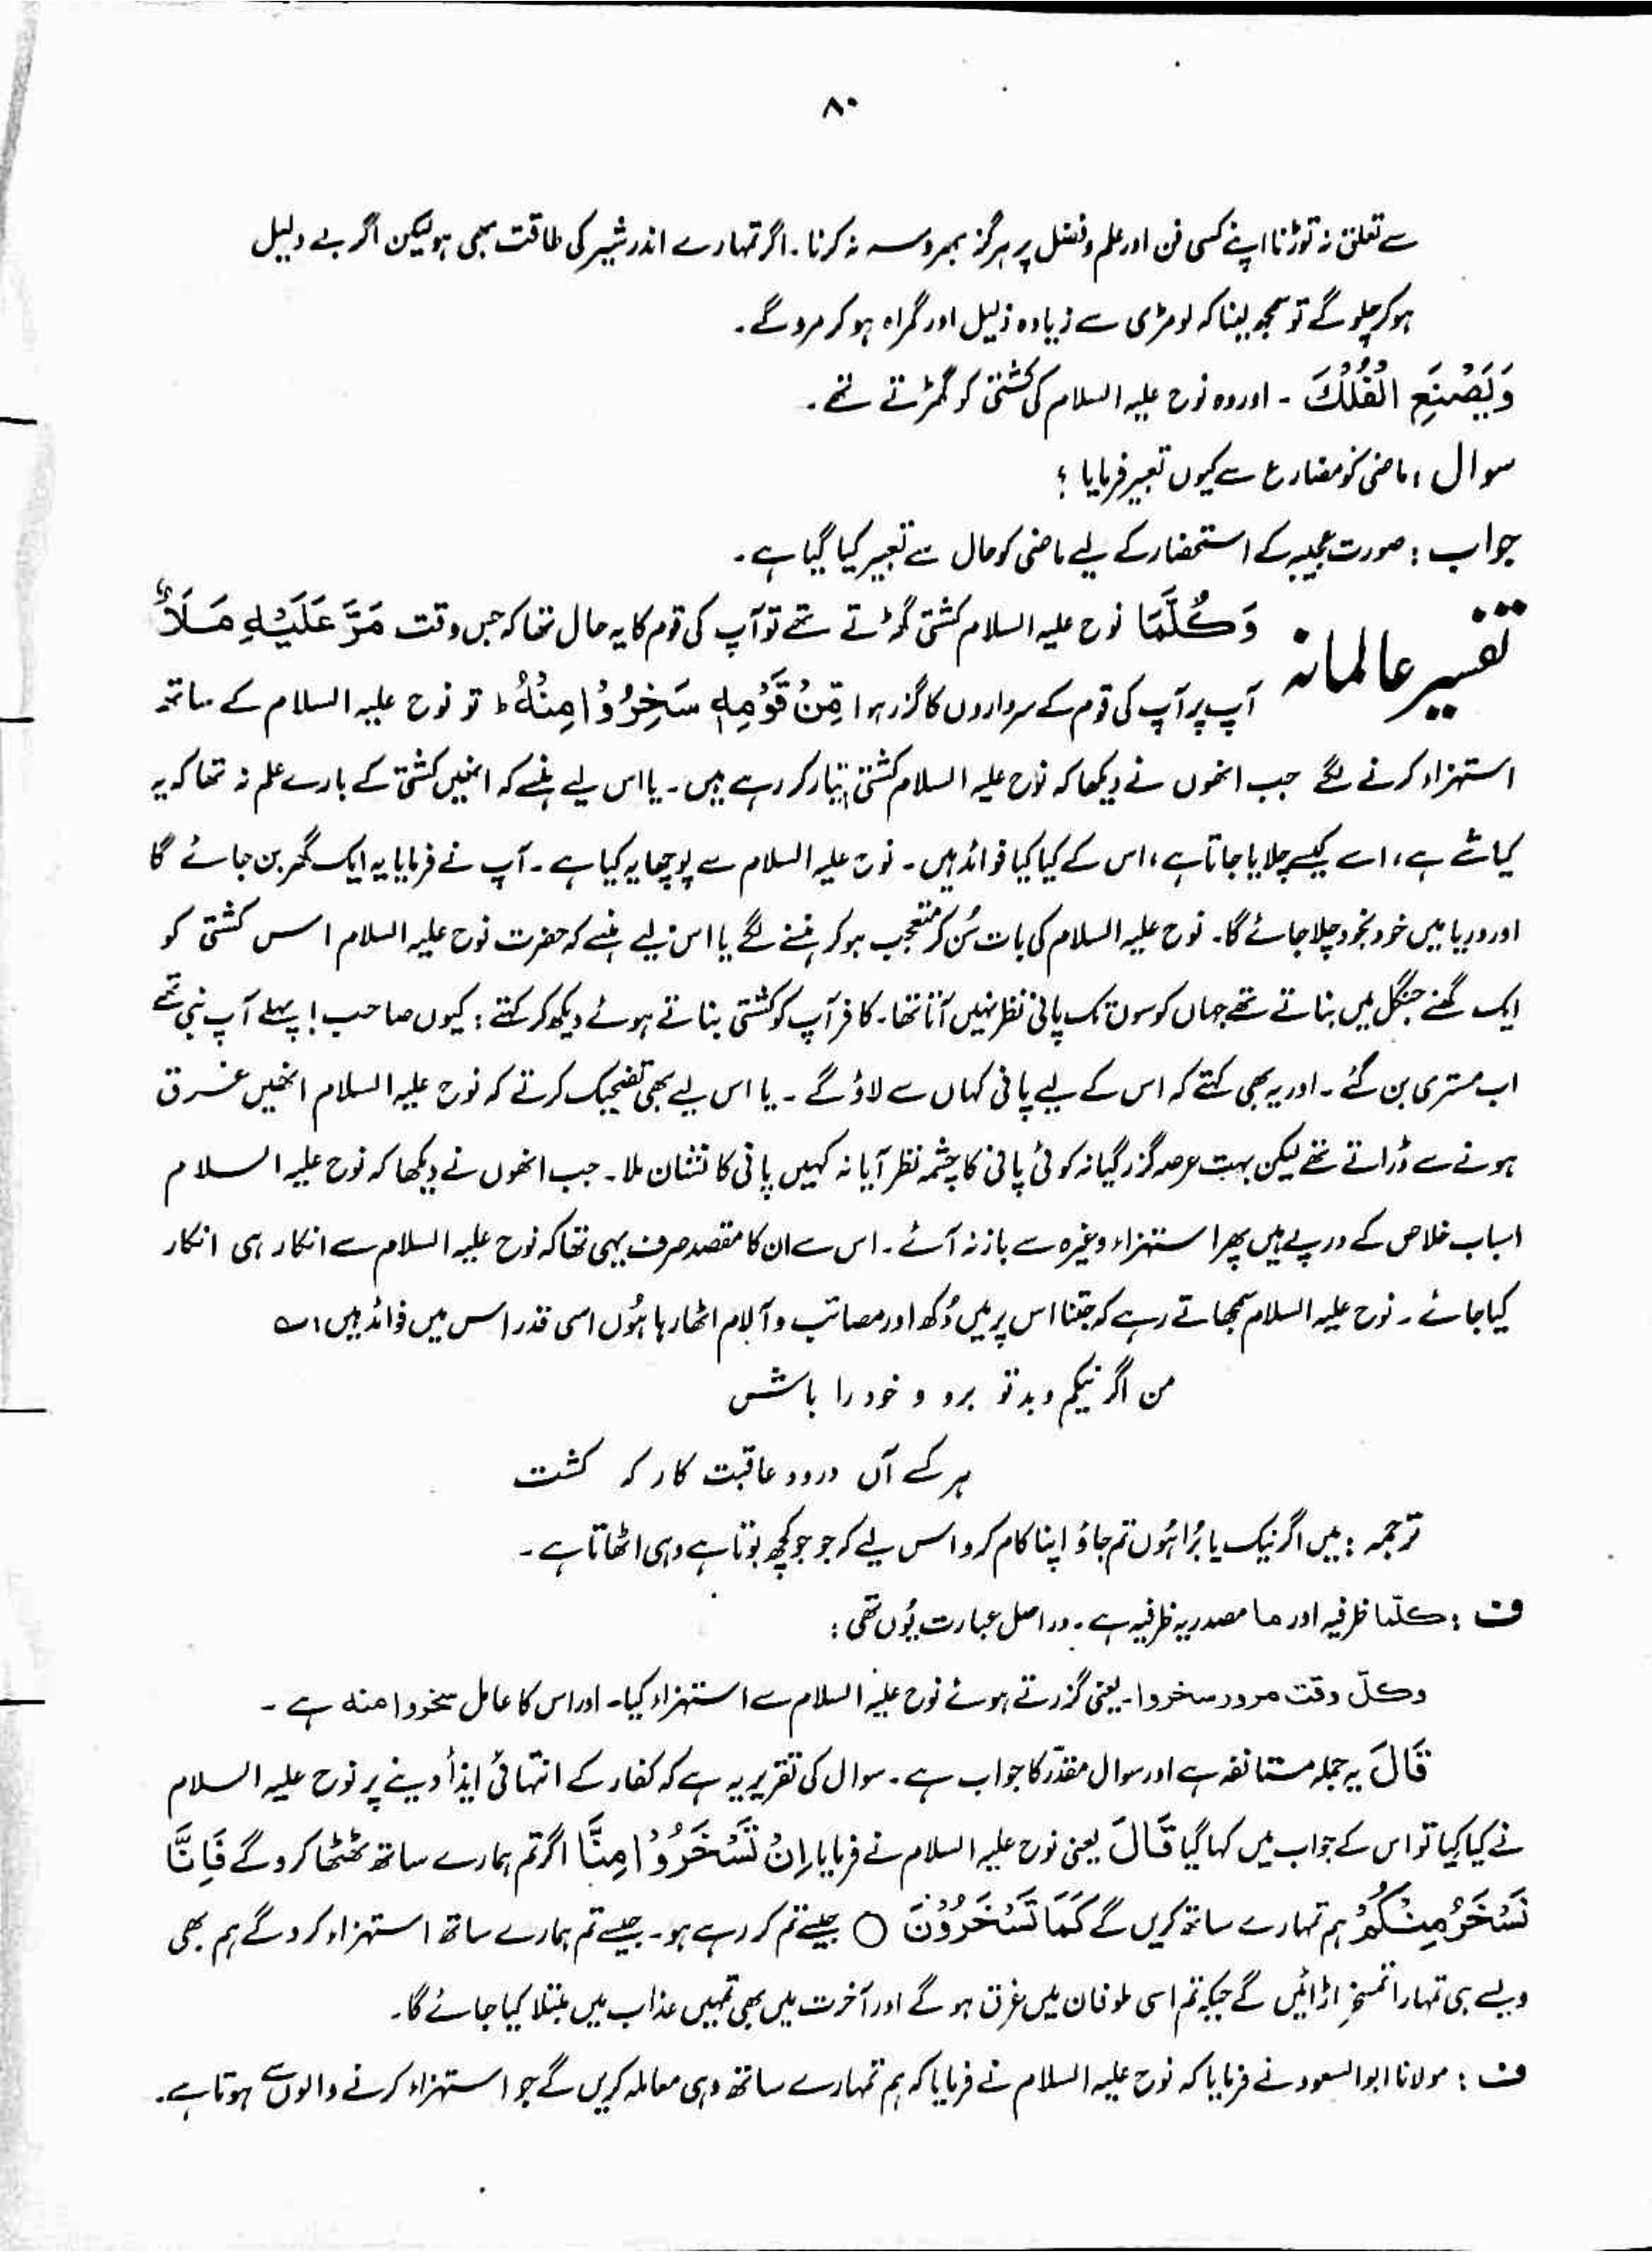 ۸۰
سے تعلق نہ توڑنا اپنے کسی فن اور علم و فضل پر ہرگز بھروسہ نہ کرنا۔ اگر تمہارے اندر شیر کی طاقت بھی ہو لیکن اگر بے دلیل
ہو کر چلو گے تو سمجھ لینا کہ لومڑی سے زیادہ ذلیل اور گمراہ ہو کر مرو گے۔
وَيَصْنَعِ الْفُلْكَ ۔ اور وہ نوح علیہ السلام کی کشتی کو گھڑتے تھے۔
سوال : ماضی کو مضارع سے کیوں تعبیر فرمایا ؟
جواب : صورت عجیبہ کے استحضار کے لیے ماضی کو حال سے تعبیر کیا گیا ہے۔
تفسیر عالمانہ وَكُلَّمَا نوح علیہ السلام کشتی گھڑتے تھے تو آپ کی قوم کا یہ حال تھا کہ جس وقت مَرَّ عَلَيْهِ مَلَأٌ
آپ پر آپ کی قوم کے سرداروں کا گزر ہوا مِّنْ قَوْمِهٖ سَخِرُوْا مِنْهُ ط تو نوح علیہ السلام کے ساتھ
استہزاء کرنے لگے جب انھوں نے دیکھا کہ نوح علیہ السلام کشتی تیار کر رہے ہیں۔ یا اس لیے ہنسے کہ انہیں کشتی کے بارے علم نہ تھا کہ یہ
کیا شے ہے، اسے کیسے چلایا جاتا ہے، اس کے کیا کیا فوائد ہیں۔ نوح علیہ السلام سے پوچھا یہ کیا ہے۔ آپ نے فرمایا یہ ایک گھر بن جائے گا
اور دریا میں خود بخود چلا جائے گا۔ نوح علیہ السلام کی بات سُن کر متعجب ہو کر ہنسنے لگے یا اس لیے ہنسے کہ حضرت نوح علیہ السلام اس کشتی کو
ایک گھنے جنگل میں بناتے تھے جہاں کوسوں تک پانی نظر نہیں آتا تھا۔ کافر آپ کو کشتی بناتے ہوئے دیکھ کر کہتے : کیوں صاحب! پہلے آپ نبی تھے
اب مستری بن گئے۔ اور یہ بھی کہتے کہ اس کے لیے پانی کہاں سے لاؤ گے ۔ یا اس لیے بھی تضحیک کرتے کہ نوح علیہ السلام انھیں غرق
ہونے سے ڈراتے تھے لیکن بہت عرصہ گزر گیا نہ کوئی پانی کا چشمہ نظر آیا نہ کہیں پانی کا نشان ملا۔ جب انھوں نے دیکھا کہ نوح علیہ السلام
اسباب خلاص کے درپے ہیں پھر استہزاء وغیرہ سے باز نہ آئے۔ اس سے ان کا مقصد صرف یہی تھا کہ نوح علیہ السلام سے انکار ہی انکار
کیا جائے۔ نوح علیہ السلام سمجھاتے رہے کہ جتنا اس پر میں دُکھ اور مصائب و آلام اٹھا رہا ہُوں اسی قدر اس میں فوائد ہیں، ؎
من اگر نیکم و بد تو برو و خود را باش
ہر کے آں درود عاقبت کار کہ کشت
ترجمہ : میں اگر نیک یا بُرا ہُوں تم جاؤ اپنا کام کرو اس لیے کہ جو جو کچھ بوتا ہے وہی اٹھاتا ہے۔
ف : كلّما ظرفیہ اور ما مصدریہ ظرفیہ ہے۔ دراصل عبارت یُوں تھی :
وكلّ وقت مرور سخروا۔ یعنی گزرتے ہوئے نوح علیہ السلام سے استہزاء کیا۔ اور اس کا عامل سخروا منه ہے۔
قَالَ یہ جملہ مستانفہ ہے اور سوال مقدّر کا جواب ہے۔ سوال کی تقریر یہ ہے کہ کفار کے انتہائی ایذأ دینے پر نوح علیہ السلام
نے کیا کیا تو اس کے جواب میں کہا گیا قَالَ یعنی نوح علیہ السلام نے فرمایا اِنْ تَسْخَرُوْا مِنَّا اگر تم ہمارے ساتھ ٹھٹھا کرو گے فَاِنَّا
نَسْخَرُ مِنْكُمْ ہم تمہارے ساتھ کریں گے كَمَا تَسْخَرُوْنَ ○ جیسے تم کر رہے ہو۔ جیسے تم ہمارے ساتھ استہزاء کرو گے ہم بھی
ویسے ہی تمہارا تمسخر اڑائیں گے جبکہ تم اسی طوفان میں غرق ہو گے اور آخرت میں بھی تمہیں عذاب میں مبتلا کیا جائے گا۔
ف : مولانا ابوالسعود نے فرمایا کہ نوح علیہ السلام نے فرمایا کہ ہم تمہارے ساتھ وہی معاملہ کریں گے جو استہزاء کرنے والوں سے ہوتا ہے۔